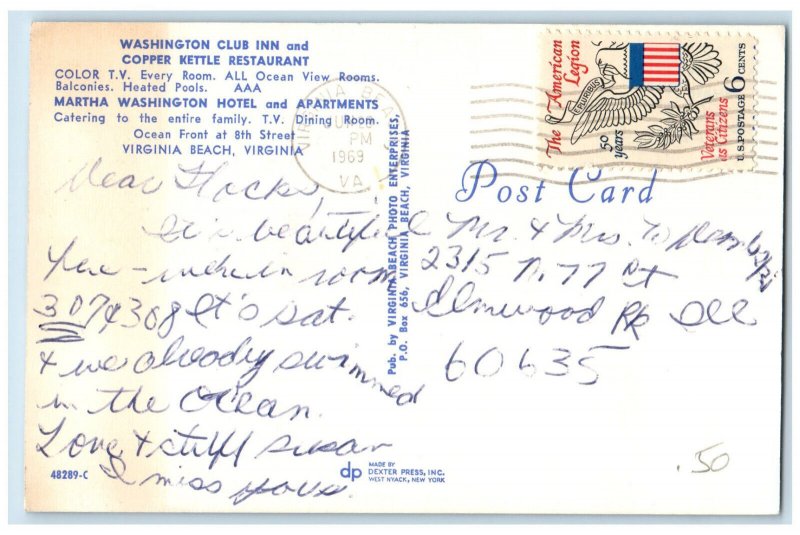 WASHINGTON CLUB INN and
COPPER KETTLE RESTAURANT
COLOR T.V. Every Room. ALL Ocean View Rooms.
Balconies. Heated Pools. AAA
MARTHA WASHINGTON HOTEL and APARTMENTS
Catering to the entire family. T.V. Dining Room.
Ocean Front at 8th Street
VIRGINIA BEACH, VIRGINIA
VIRGINIA BEACH
PM
1969
VA
The American
Legion
50
years
Veterans
as Citizens
U.S. POSTAGE 6 CENTS
Post Card
Dear
It is beautiful
here - we're in room
307 & 308 It's sat.
& we already swimmed
in the Ocean.
Love & stuff Susan
I miss you
Pub. by VIRGINIA BEACH PHOTO ENTERPRISES,
P.O. Box 656, VIRGINIA BEACH, VIRGINIA
Mr. & Mrs.
2315 N. 77 St
Elmwood Pk Ill
60635
48289-C
dp
MADE BY
DEXTER PRESS, INC.
WEST NYACK, NEW YORK
.50